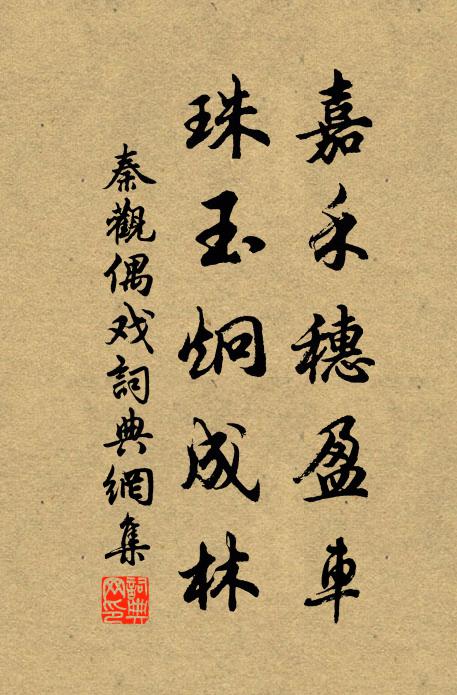 嘉禾穗盈車
珠玉炯成林
秦觀偶戏詞典網集
詞典网印